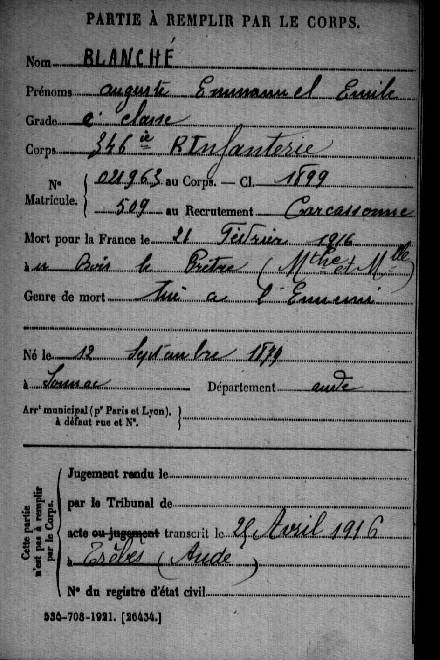 PARTIE À REMPLIR PAR LE CORPS.
Nom BLANCHÉ
Prénoms Auguste Emmanuel Emile
Grade 2e classe
Corps 346e R Infanterie
N° Matricule. { 021963 au Corps. — Cl. 1899
509 au Recrutement Carcassonne
Mort pour la France le 21 Février 1916
à u Bois le Prêtre (Mthe et Mlle)
Genre de mort tué à l'Ennemi
Né le 12 Septembre 1879
à Sonnac Département aude
Arrt municipal (pr Paris et Lyon), à défaut rue et N°. }
Cette partie n'est pas à remplir par le Corps.
Jugement rendu le
par le Tribunal de
acte ou jugement transcrit le 25 Avril 1916
à Trèbes (Aude)
N° du registre d'état civil
534-708-1921. [26434.]